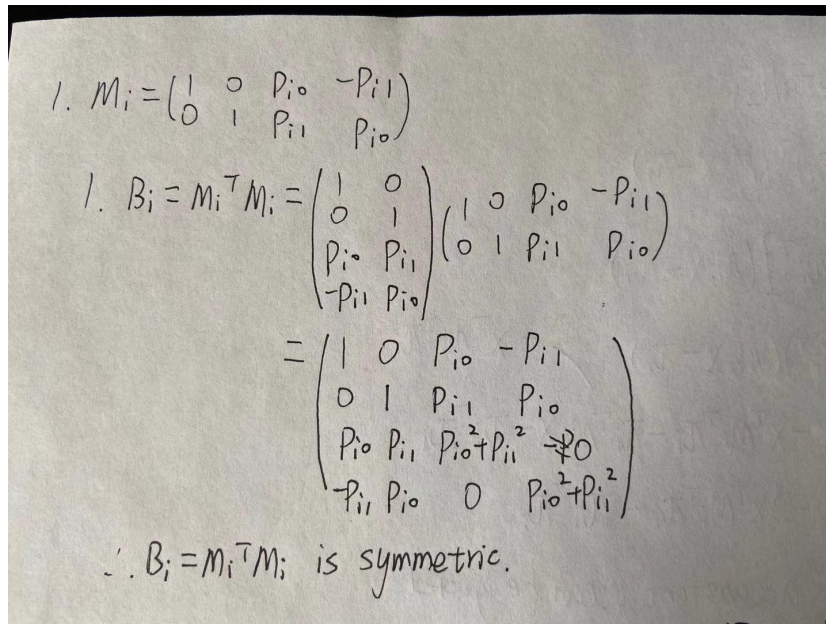 1. Mi = ( 1 0 Pi0 -Pi1
0 1 Pi1 Pi0 )
1. Bi = MiᵀMi = ( 1 0
0 1
Pi0 Pi1
-Pi1 Pi0 ) ( 1 0 Pi0 -Pi1
0 1 Pi1 Pi0 )
= ( 1 0 Pi0 -Pi1
0 1 Pi1 Pi0
Pi0 Pi1 Pi0²+Pi1² 0
-Pi1 Pi0 0 Pi0²+Pi1² )
∴ Bi = MiᵀMi is symmetric.